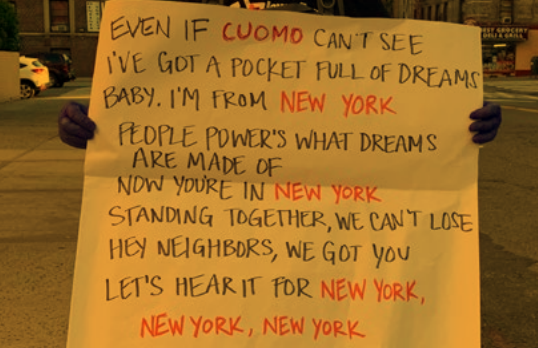 EVEN IF CUOMO CAN'T SEE
I'VE GOT A POCKET FULL OF DREAMS
BABY. I'M FROM NEW YORK
PEOPLE POWER'S WHAT DREAMS
ARE MADE OF
NOW YOU'RE IN NEW YORK
STANDING TOGETHER, WE CAN'T LOSE
HEY NEIGHBORS, WE GOT YOU
LET'S HEAR IT FOR NEW YORK,
NEW YORK, NEW YORK